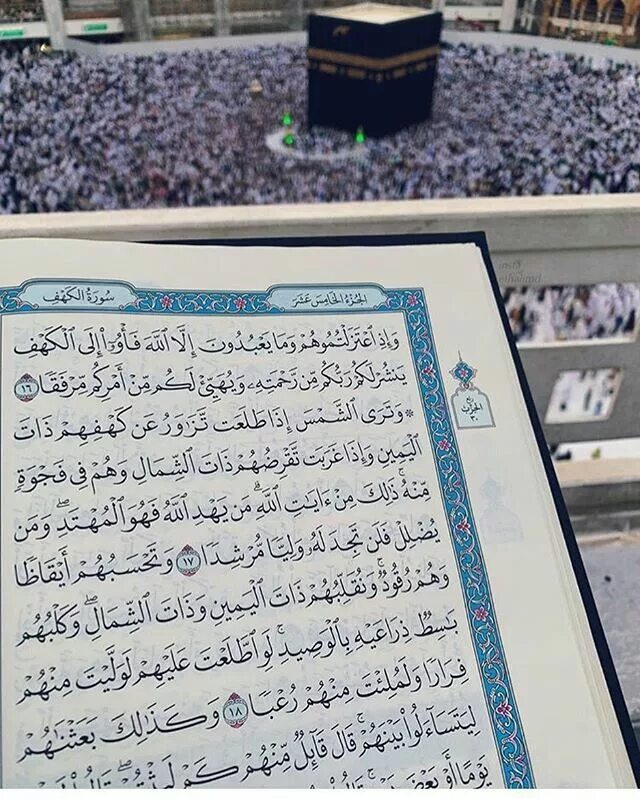 سُورَةُ الكَهْفِ
الجُزْءُ الخَامِسَ عَشَرَ
وَإِذِ ٱعْتَزَلْتُمُوهُمْ وَمَا يَعْبُدُونَ إِلَّا ٱللَّهَ فَأْوُۥٓاْ إِلَى ٱلْكَهْفِ
يَنشُرْ لَكُمْ رَبُّكُم مِّن رَّحْمَتِهِۦ وَيُهَيِّئْ لَكُم مِّنْ أَمْرِكُم مِّرْفَقًا ١٦
* وَتَرَى ٱلشَّمْسَ إِذَا طَلَعَت تَّزَٰوَرُ عَن كَهْفِهِمْ ذَاتَ
ٱلْيَمِينِ وَإِذَا غَرَبَت تَّقْرِضُهُمْ ذَاتَ ٱلشِّمَالِ وَهُمْ فِى فَجْوَةٍ
مِّنْهُ ۚ ذَٰلِكَ مِنْ ءَايَٰتِ ٱللَّهِ ۗ مَن يَهْدِ ٱللَّهُ فَهُوَ ٱلْمُهْتَدِ ۖ وَمَن
يُضْلِلْ فَلَن تَجِدَ لَهُۥ وَلِيًّا مُّرْشِدًا ١٧ وَتَحْسَبُهُمْ أَيْقَاظًا
وَهُمْ رُقُودٌ ۚ وَنُقَلِّبُهُمْ ذَاتَ ٱلْيَمِينِ وَذَاتَ ٱلشِّمَالِ ۖ وَكَلْبُهُم
بَٰسِطٌ ذِرَاعَيْهِ بِٱلْوَصِيدِ ۚ لَوِ ٱطَّلَعْتَ عَلَيْهِمْ لَوَلَّيْتَ مِنْهُمْ
فِرَارًا وَلَمُلِئْتَ مِنْهُمْ رُعْبًا ١٨ وَكَذَٰلِكَ بَعَثْنَٰهُمْ
لِيَتَسَآءَلُواْ بَيْنَهُمْ ۚ قَالَ قَآئِلٌ مِّنْهُمْ كَمْ لَبِثْتُمْ ۖ قَالُواْ
يَوْمًا أَوْ بَعْضَ
رُبْعُ
الحِزْبِ
٣٠